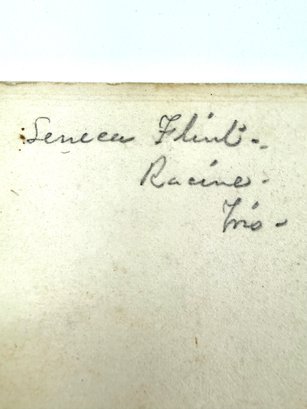 Seneca Flint-
Racine-
Wis-